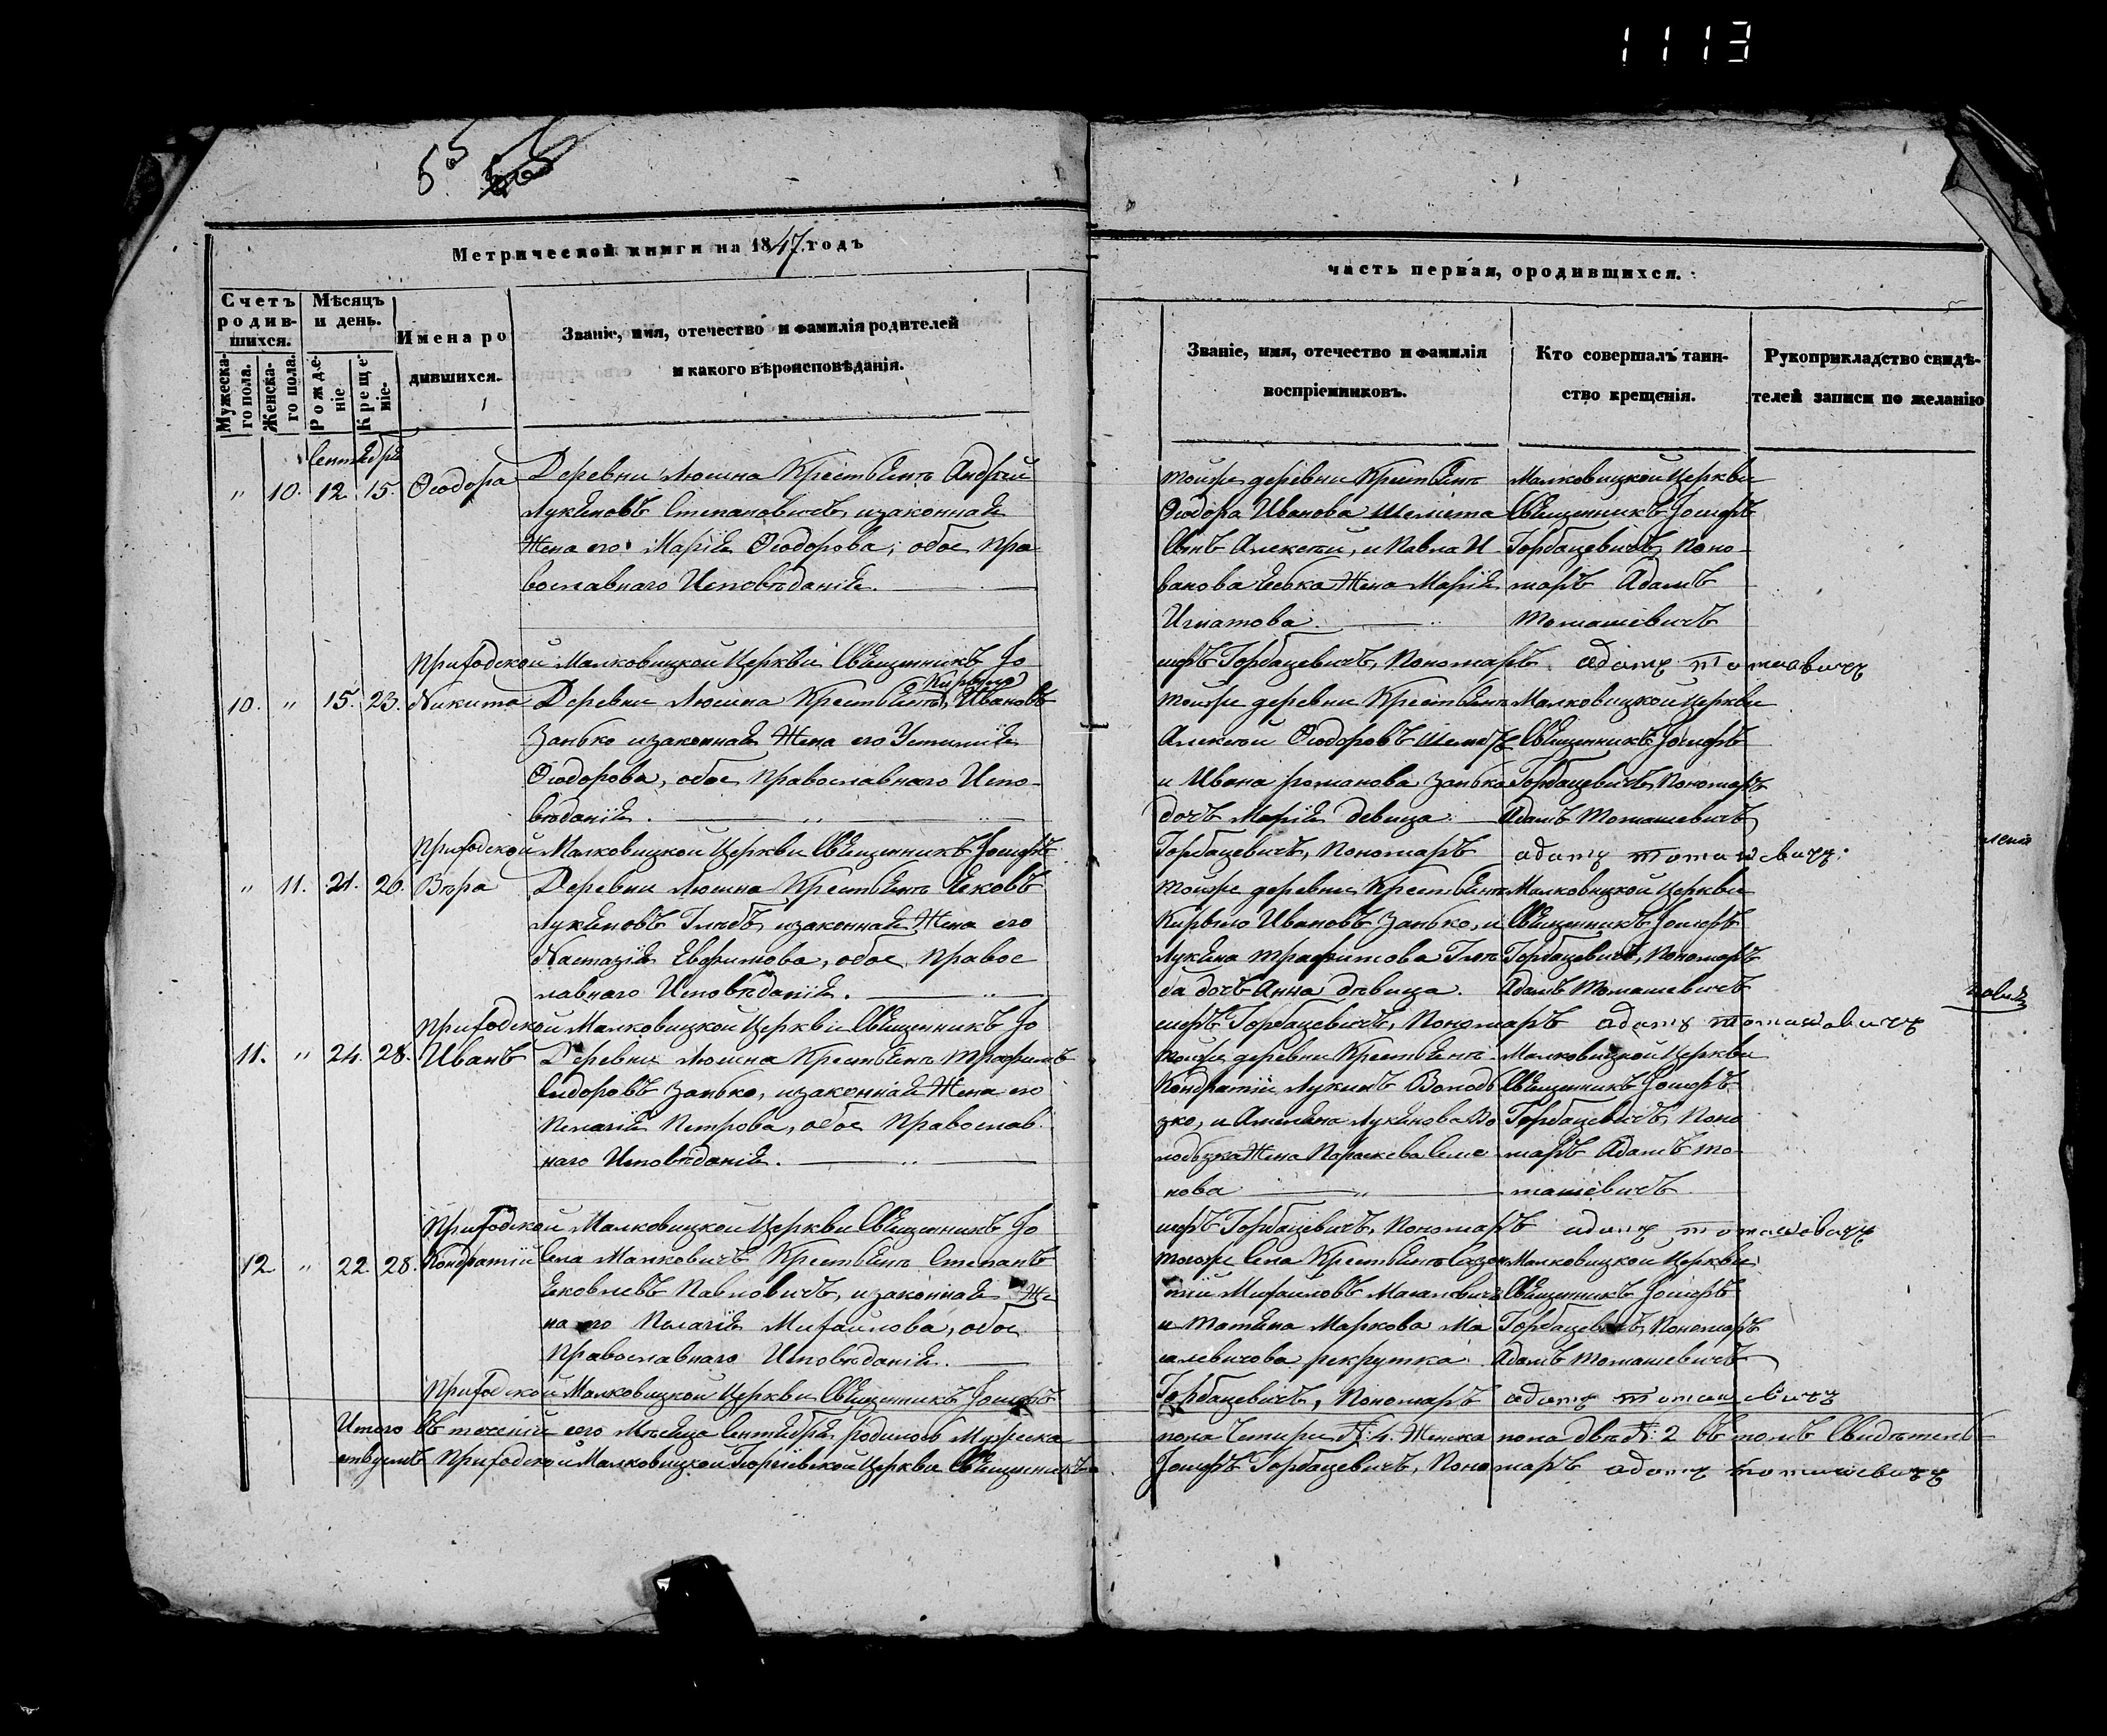 1113
Метрической книги на 1847. годъ
часть первая, ородившихся.
Счетъ родившихся.
Мужескаго пола.
Женскаго пола.
Мѣсяцъ и день.
Рожденіе
Крещеніе.
Имена родившихся.
Званіе, имя, отечество и фамилія родителей
и какого вѣроисповѣданія.
Званіе, имя, отечество и фамилія
воспріемниковъ.
Кто совершалъ таин-
ство крещенія.
Рукоприкладство свидѣ-
телей записи по желанію
Сентября
" 10. 12. 15. Ѳеодора
Деревни Люсина Крестьянъ Андрей
Лукяновъ Степановичъ, изаконная
Жена его Марія Ѳеодорова, обое Пра
вославнаго Исповѣданія.
тойже деревни Крестьянъ
Ѳеодора Иванова Шемета
Сынъ Алексѣй, и Павла И
ванова Жена Марія
Игнатова.
Малковицкой Церкви
Священникъ Іосифъ
Горбацевичъ, Поно-
маръ Адамъ
Томашевичъ
Приходской Малковицкой Церкви Священникъ Іо
сифъ Горбацевичъ, Пономаръ Адамъ Томашевичъ
10. " 15. 23. Никита
Деревни Люсина Крестьянъ Кирыло Ивановъ
Занько изаконная Жена его Устимія
Ѳеодорова, обое Православнаго Испо-
вѣданія.
тойже деревни Крестьянъ
Алексѣй Ѳеодоровъ Шеметъ
и Ивана романова Занька
дочъ Марія девица.
Малковицкой Церкви
Священникъ Іосифъ
Горбацевичъ, Пономаръ
Адамъ Томашевичъ
Приходской Малковицкой Церкви Священникъ Іосифъ
Горбацевичъ, Пономаръ Адамъ Томашевичъ.
" 11. 21. 26. Вѣра
Деревни Люсина Крестьянъ Яковъ
Лукяновъ Глѣбъ, изаконная Жена его
Настазія Евфимова, обое Правос
лавнаго Исповѣданія.
тойже деревни Крестьянъ
Кирыло Ивановъ Занько, и
Лукяна Трафимова Глѣ
ба дочъ Анна дѣвица.
Малковицкой Церкви
Священникъ Іосифъ
Горбацевичъ, Пономаръ
Адамъ Томашевичъ
Приходской Малковицкой Церкви Священникъ Іо
сифъ Горбацевичъ, Пономаръ Адамъ Томашевичъ
11. " 24. 28. Иванъ
Деревни Люсина Крестьянъ Трафимъ
Сидоровъ Занько, изаконная Жена его
Пелагія Петрова, обое Православ
наго Исповѣданія.
тойже деревни Крестьянъ
Кондратій Лукинъ Володь
зко, и Амеляна Лукянова Во
лодьзка Жена Параскева Семе
нова
Малковицкой Церкви
Священникъ Іосифъ
Горбацевичъ, Поно
маръ Адамъ То
машевичъ
Приходской Малковицкой Церкви Священникъ Іо
сифъ Горбацевичъ, Пономаръ Адамъ Томашевичъ
12. " 22. 28. Кондратій
Села Малковичъ Крестьянъ Степанъ
Яковлевъ Павловичъ, изаконная Же
на его Пелагія Михайлова, обое
Православнаго Исповѣданія.
тогоже Села Крестьянъ
Михайловъ
и Татяна Маркова Ма
салевичова рекрутка.
Малковицкой Церкви
Священникъ Іосифъ
Горбацевичъ, Пономаръ
Адамъ Томашевичъ
Приходской Малковицкой Церкви Священникъ Іосифъ
Горбацевичъ, Пономаръ Адамъ Томашевичъ
Итого въ теченіи сего Мѣсяца Сентября родилось Мужеска
пола Четыри №: 4. Женска пола двѣ №: 2 въ томъ Свидѣтель
ствуемъ Приходской Малковицкой Георгіевской Церкви Священникъ
Іосифъ Горбацевичъ, Пономаръ Адамъ Томашевичъ